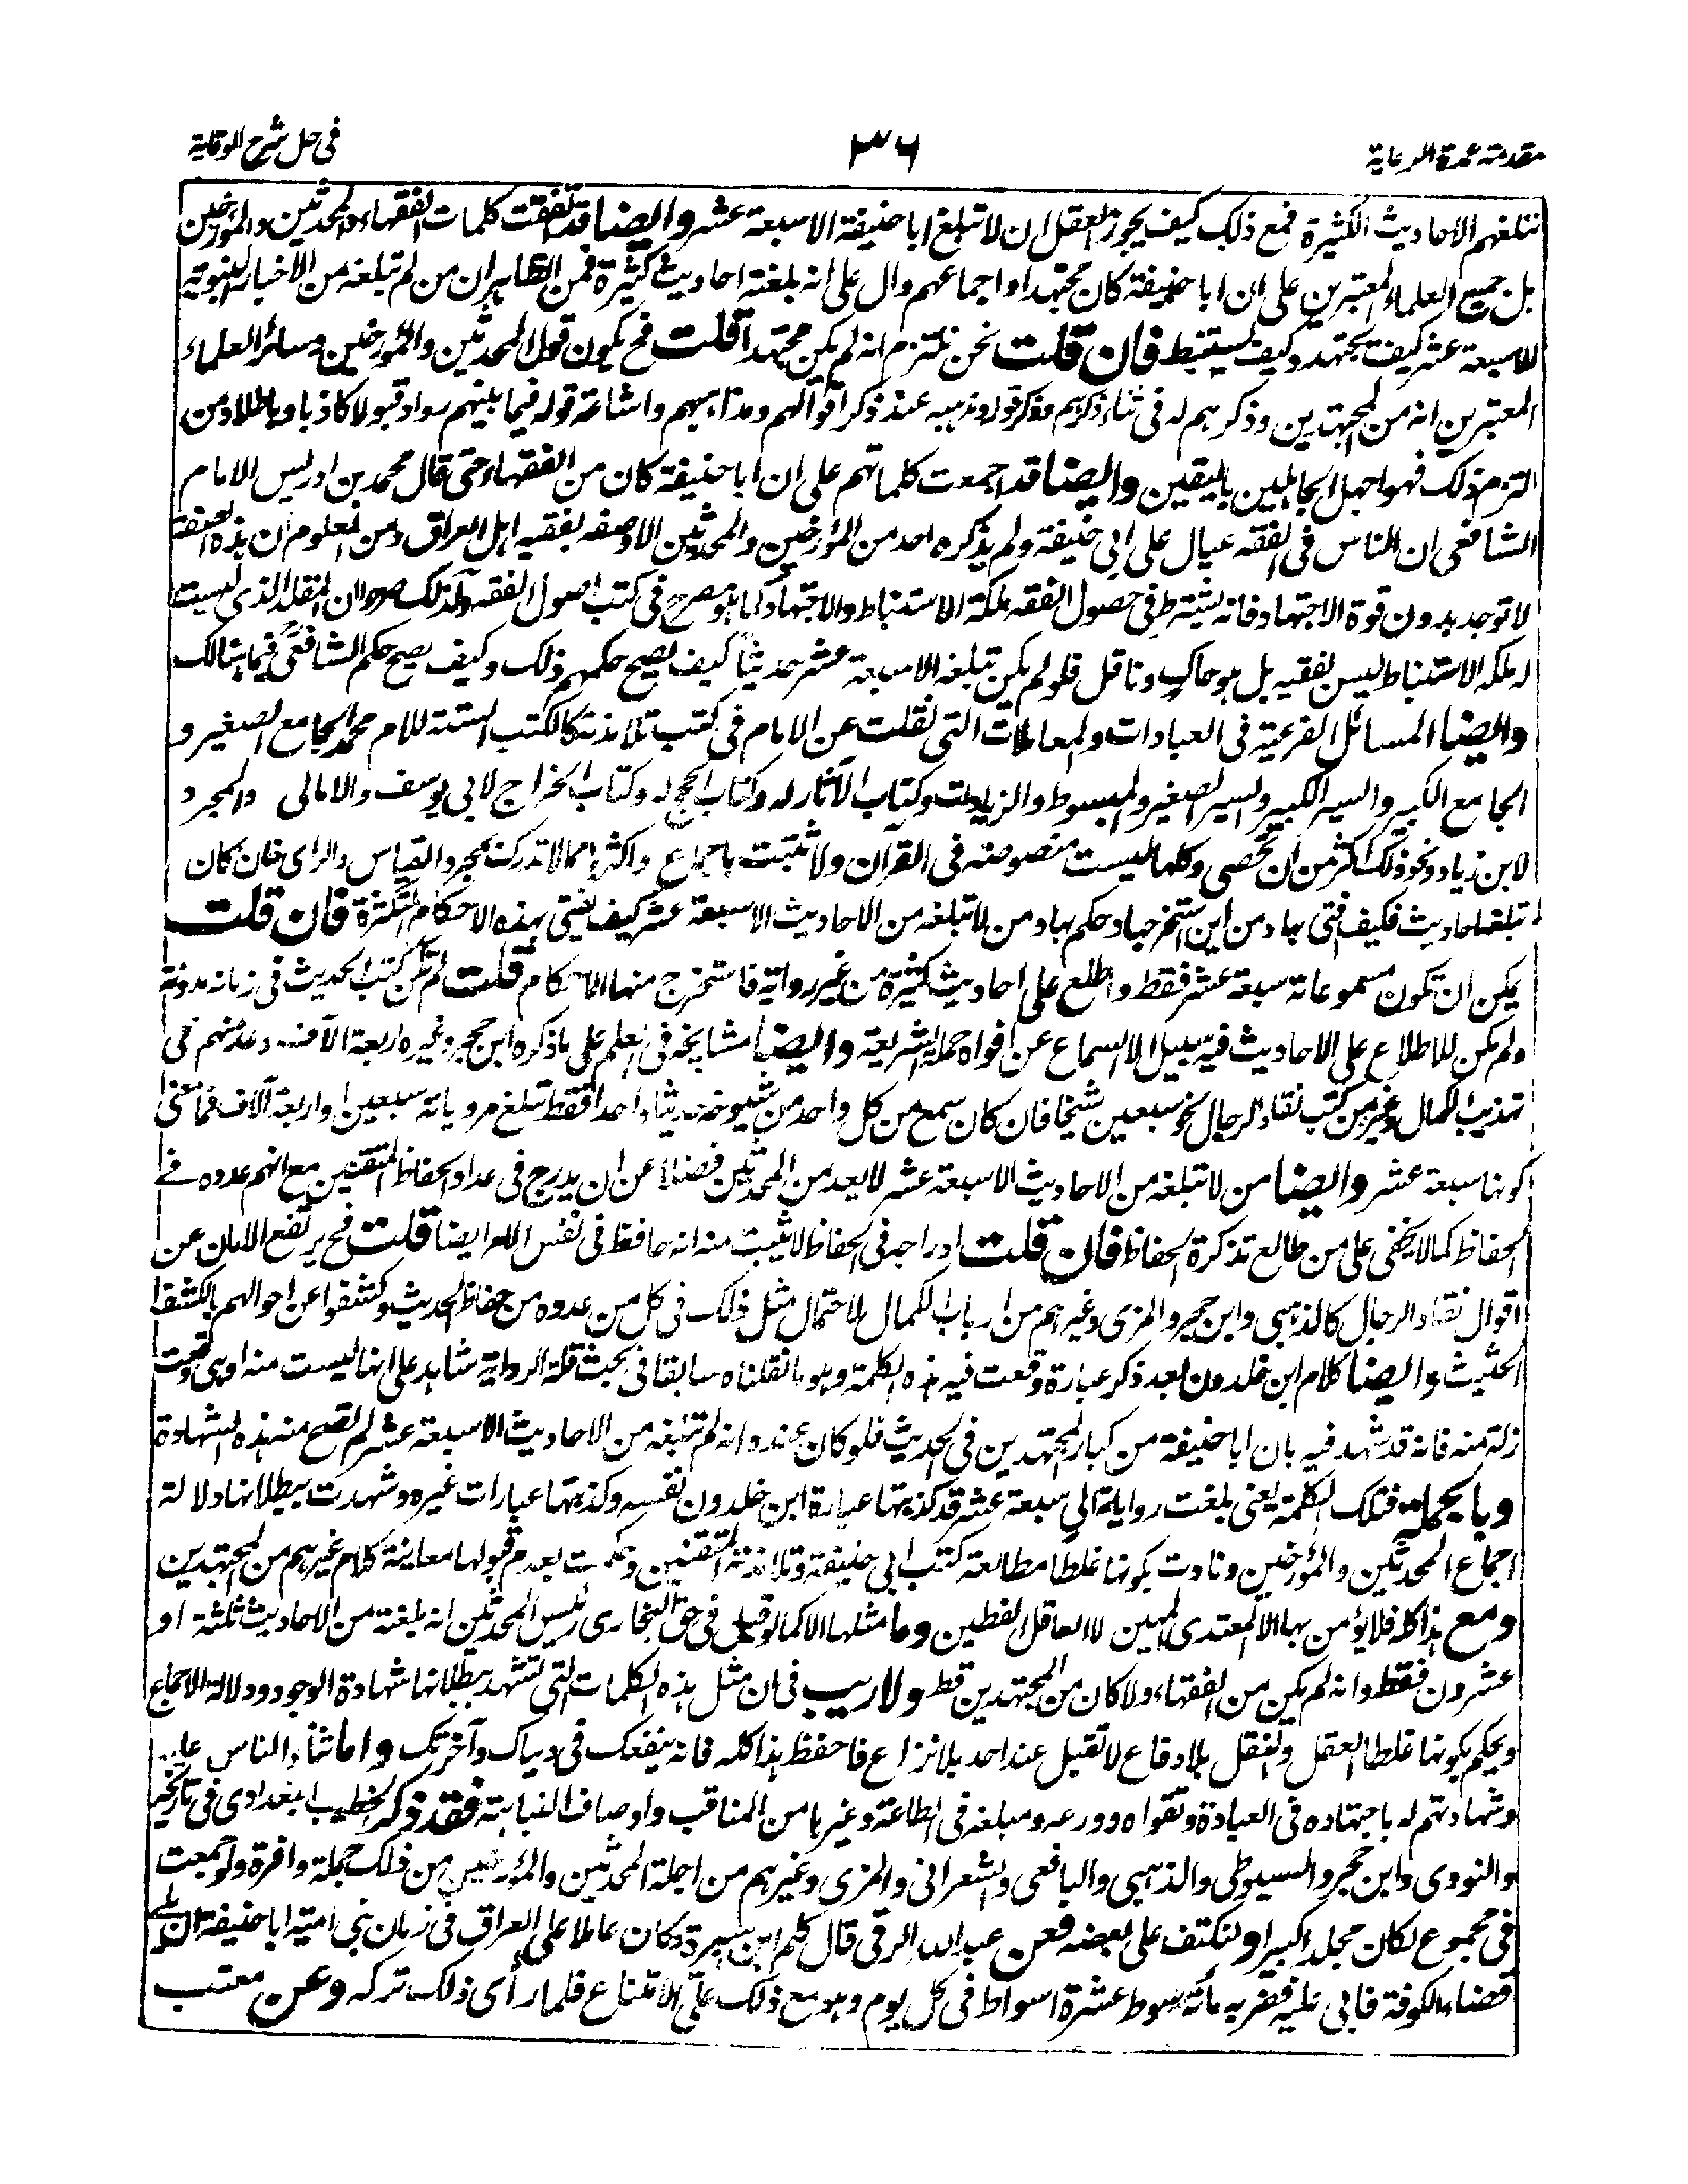 مقدمة عمدة الرعاية
٣٦
في حل شرح الوقاية
تبلغهم الاحاديث الكثيرة فمع ذلك كيف يجوز العقل ان لا تبلغ ابا حنيفة الا سبعة عشر وايضا قد اتفقت كلمات الفقهاء والمحدثين والمؤرخين
بل جميع العلماء المعتبرين على ان ابا حنيفة كان مجتهدا واجماعهم دال على انه بلغته احاديث كثيرة فمن الظاهر ان من لم تبلغه من الاخبار النبوية
الا سبعة عشر كيف يجتهد وكيف يستنبط فان قلت نحن نلتزم انه لم يكن مجتهدا قلت فح يكون قول المحدثين والمؤرخين وسائر العلماء
المعتبرين انه من المجتهدين وذكرهم له في اثناء ذكرهم وذكر قوله ومذهبه عند ذكر اقوالهم ومذاهبهم واشاعة قوله فيما بينهم ردا وقبولا كاذبا وباطلا ومن
التزم ذلك فهو اجهل الجاهلين باليقين وايضا قد اجمعت كلماتهم على ان ابا حنيفة كان من الفقهاء حتى قال محمد بن ادريس الامام
الشافعي ان الناس في الفقه عيال على ابي حنيفة ولم يذكره احد من المؤرخين والمحدثين الا وصفه بفقيه اهل العراق ومن المعلوم ان هذه الصفة
لا توجد بدون قوة الاجتهاد فانه يشترط في حصول الفقه ملكة الاستنباط والاجتهاد كما هو مصرح في كتب اصول الفقه ولذلك صرحوا ان المقلد الذي ليست
له ملكة الاستنباط ليس بفقيه بل هو حاك وناقل فلو لم يكن تبلغه الا سبعة عشر حديثا كيف يصح حكمهم ذلك وكيف يصح حكم الشافعي فيما هنالك
وايضا المسائل الفرعية في العبادات والمعاملات التي نقلت عن الامام في كتب تلامذته كالكتب الستة للامام محمد الجامع الصغير و
الجامع الكبير والسير الكبير والسير الصغير والمبسوط والزيادات وكتاب الآثار له وكتاب الحجج له وكتاب الخراج لابي يوسف والامالى والمجرد
لابن زياد ونحو ذلك اكثر من ان تحصى وكلها ليست منصوصة في القرآن ولا تثبت باجماع واكثرها مما لا تدرك بمجرد القياس والراى فان كان
لم تبلغه احاديث فكيف افتى بها ومن اين استخرجها وحكم بها ومن لا تبلغه من الاحاديث الا سبعة عشر كيف يفتي بهذه الاحكام المتكثرة فان قلت
يمكن ان تكون مسموعاته سبعة عشر فقط واطلع على احاديث كثيرة من غير رواية فاستخرج منها الاحكام قلت لم تكن كتب الحديث في زمانه مدونة
ولم يكن للاطلاع على الاحاديث فيه سبيل الا السماع عن افواه حملة الشريعة وايضا مشايخه في العلم على ما ذكره ابن حجر وغيره اربعة الآف وعد منهم في
تهذيب الكمال وغيره من كتب نقاد الرجال نحو سبعين شيخا فان كان سمع من كل واحد من شيوخه حديثا واحدا فقط تبلغ مروياته سبعين او اربعة آلاف فما معنى
كونها سبعة عشر وايضا من لا تبلغه من الاحاديث الا سبعة عشر لا يعد من المحدثين فضلا عن ان يدرج في عداد الحفاظ المتقنين مع انهم عدوه في
الحفاظ كما لا يخفى على من طالع تذكرة الحفاظ فان قلت ادراجه في الحفاظ لا يثبت منه انه حافظ في نفس الامر ايضا قلت فح يرتفع الامان عن
اقوال نقاد الرجال كالذهبي وابن حجر والمزى وغيرهم من ارباب الكمال لاحتمال مثل ذلك في كل من عدوه من حفاظ الحديث وكشفوا عن احوالهم بالكشف
الحثيث وايضا كلام ابن خلدون بعد ذكر عبارة وقعت فيه هذه الكلمة وهو ما نقلناه سابقا في بحث قلة الرواية شاهد على انها ليست منه او هي وقعت
زلة منه فانه قد شهد فيه بان ابا حنيفة من كبار المجتهدين في الحديث فلو كان عنده انه لم تبلغه من الاحاديث الا سبعة عشر لم تصح منه هذه الشهادة
وبالجملة فتلك الكلمة يعني بلغت رواياته الى سبعة عشر قد كذبتها عبارة ابن خلدون نفسه وكذبتها عبارات غيره وشهدت ببطلانها دلالة
اجماع المحدثين والمؤرخين ونادت بكونها غلطا مطالعة كتب ابي حنيفة وتلامذته المتقنين وحكمت بعدم قبولها معاينة كلام غيرهم من المجتهدين
ومع هذا كله فلا يؤمن بها الا المعتدي المهين لا العاقل الفطين وما مثلها الا كما لو قيل في حق البخارى رئيس المحدثين انه بلغته من الاحاديث ثلثة او
عشرون فقط وانه لم يكن من الفقهاء ولا كان من المجتهدين قط ولا ريب في ان مثل هذه الكلمات التي تشهد ببطلانها شهادة الوجود ودلالة الاجماع
ويحكم بكونها غلطا العقل والنقل بلا دفاع لا تقبل عند احد بلا نزاع فاحفظ هذا كله فانه ينفعك في دنياك وآخرتك واما ثناء الناس عليه
وشهادتهم له باجتهاده في العبادة وتقواه وورعه ومبلغه في الطاعة وغيرها من المناقب واوصاف النباهة فقد ذكر الخطيب البغدادى في تاريخه
والنووي وابن حجر والسيوطي والذهبي واليافعي والشعراني والمزى وغيرهم من اجلة المحدثين والمؤرخين من ذلك جملة وافرة ولو جمعت
في مجموع لكان مجلدا كبيرا ولنكتف على بعضه فعن عبد الله الرقي قال كلم ابن هبيرة وكان عاملا على العراق في زمان بني امية ابا حنيفة ان يلي
قضاء الكوفة فابى عليه فضربه مائة سوط عشرة اسواط في كل يوم وهو مع ذلك على الامتناع فلما رأى ذلك تركه وعن معتب